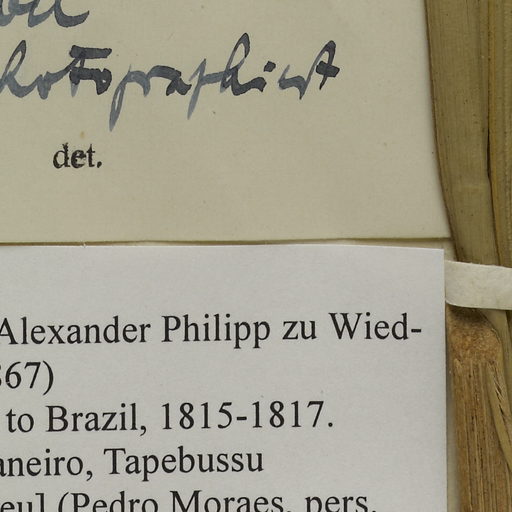 photographiert
det.
Alexander Philipp zu Wied-
867)
to Brazil, 1815-1817.
aneiro, Tapebussu
eu] (Pedro Moraes, pers.